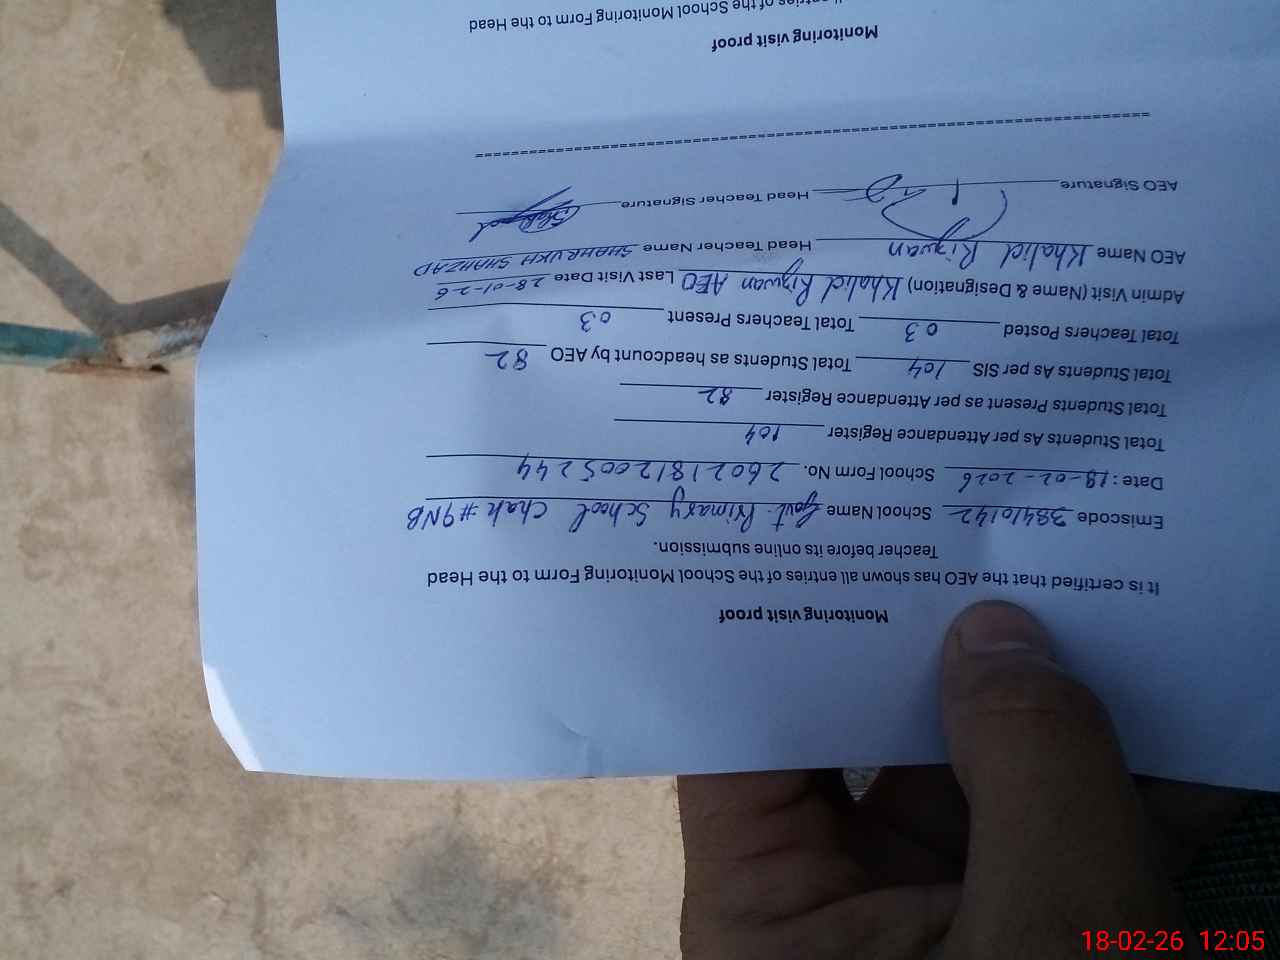 Monitoring visit proof
It is certified that the AEO has shown all entries of the School Monitoring Form to the Head
Teacher before its online submission.
Emiscode 38410142 School Name Govt. Primary School Chak #9NB
Date: 18-02-2026 School Form No. 26021812005244
Total Students As per Attendance Register 104
Total Students Present as per Attendance Register 82
Total Students As per SIS 104 Total Students as headcount by AEO 82
Total Teachers Posted 03 Total Teachers Present 03
Admin Visit (Name & Designation) Khalid Rizwan AEO Last Visit Date 28-01-26
AEO Name Khalid Rizwan Head Teacher Name SHAHRUKH SHAHZAD
AEO Signature Head Teacher Signature
Monitoring visit proof
entries of the School Monitoring Form to the Head
18-02-26 12:05